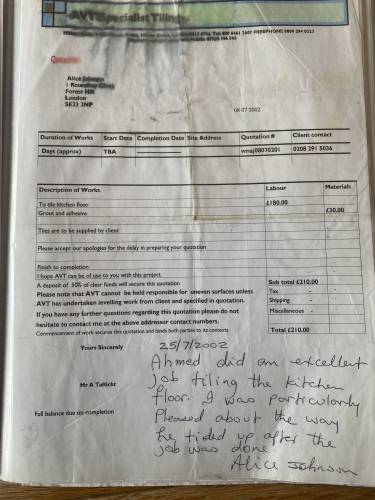 AVT Specialist Tiling
FREEPHONE 0800 294 0323
Alice Johnson
1 Roundhay Close
Forest Hill
London
SE23 2NP
08 07 2002
Duration of Works Start Date Completion Date Site Address Quotation # Client contact
Days (approx) TBA wmaj08070201 0208 291 5036
Description of Works Labour Materials
To tile kitchen floor £180.00
Grout and adhesive £30.00
Tiles are to be supplied by client
Please accept our apologies for the delay in preparing your quotation
Finish to completion
I hope AVT can be of use to you with this project.
A deposit of 50% of clear funds will secure this quotation Sub total £210.00
Please note that AVT cannot be held responsible for uneven surfaces unless Tax -
AVT has undertaken levelling work from client and specified in quotation. Shipping -
If you have any further questions regarding this quotation please do not Miscellaneous -
hesitate to contact me at the above addressor contact numbers.
Commencement of work secures this quotation and binds both parties to its contents Total £210.00
Yours Sincerely
Mr A
Full balance due on completion
25/7/2002
Ahmed did an excellent
job tiling the kitchen
floor. I was particularly
Pleased about the way
he tided up after the
job was done.
Alice Johnson